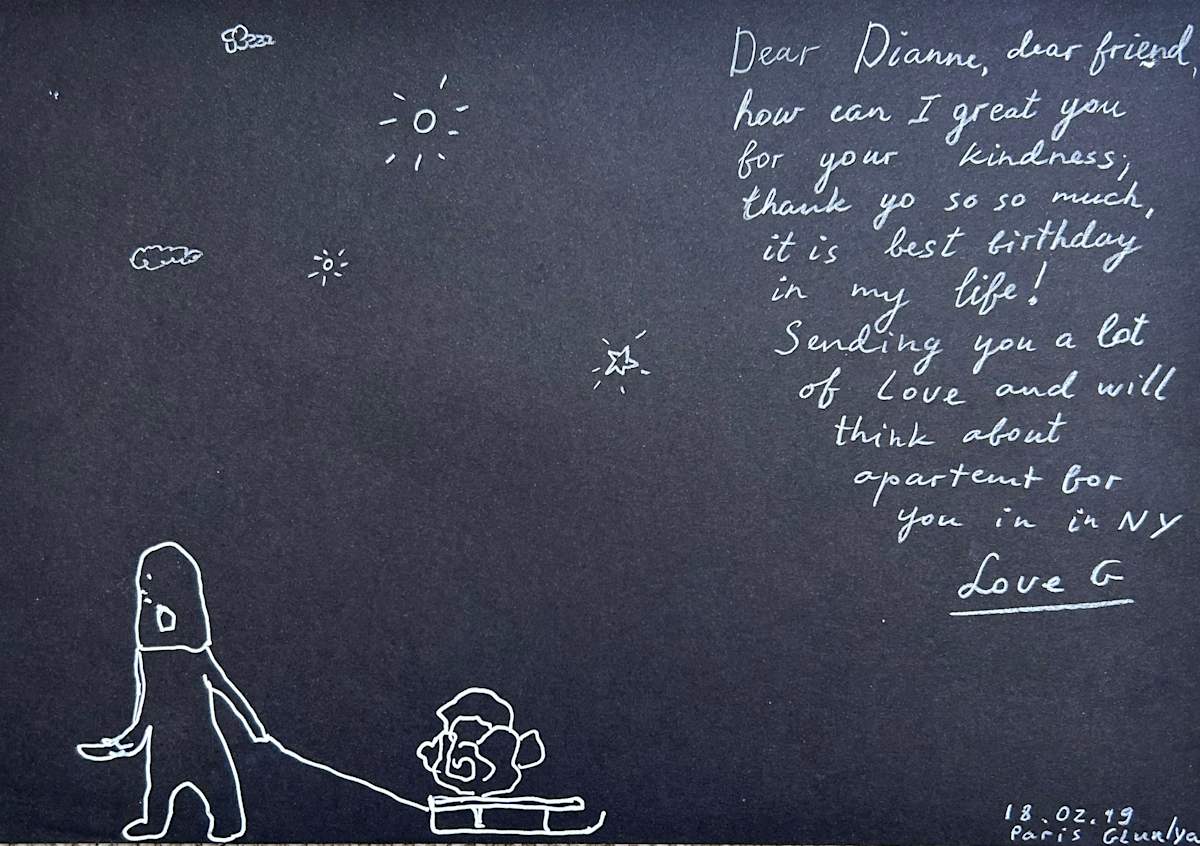 Dear Dianne, dear friend,
how can I great you
for your kindness,
thank yo so so much,
it is best birthday
in my life!
Sending you a lot
of Love and will
think about
apartemt for
you in in NY
Love G
18.02.19
Paris